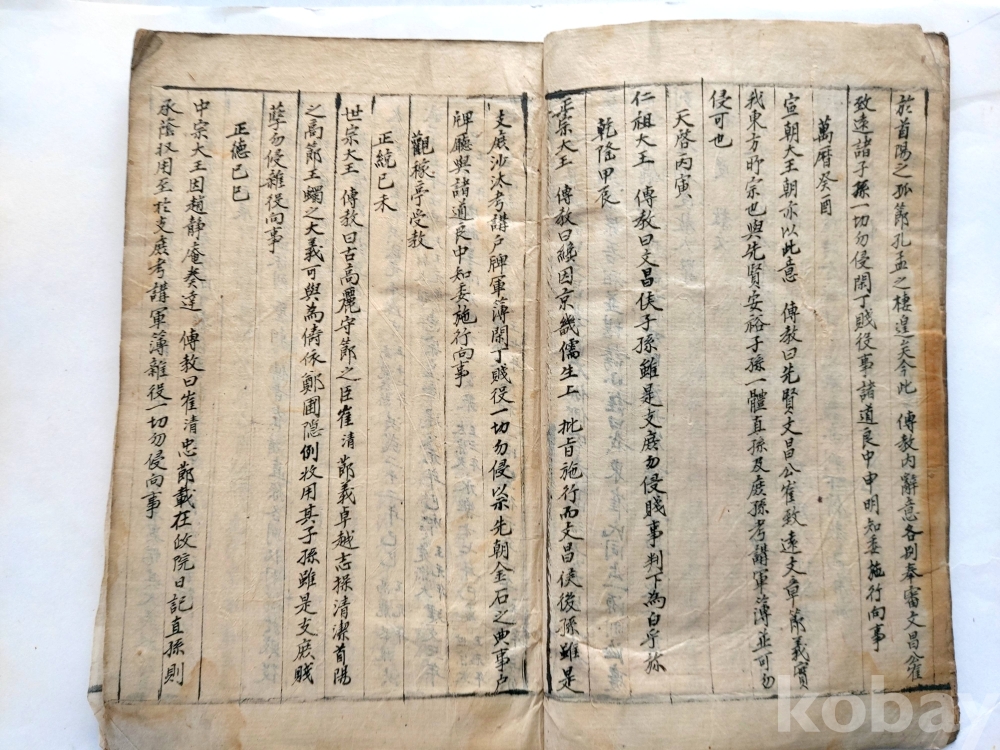 於首陽之孤節孔孟之棲遑矣今此 傳敎內辭意各別奉審文昌公崔
致遠諸子孫一切勿侵閑丁賤役事諸道良中申明知委施行向事
萬曆癸酉
宣朝大王朝亦以此意 傳敎曰先賢文昌公崔致遠文章節義實
我東方所宗也與先賢安裕子孫一體直孫及庶孫考講軍簿並可勿
侵可也
天啓丙寅
仁祖大王 傳敎曰文昌侯子孫雖是支庶勿侵賤事判下爲白乎旀
乾隆甲辰
正宗大王 傳敎曰纔因京畿儒生上 批旨施行而文昌侯後孫雖是
支庶沙汰考講戶牌軍簿閑丁賤役一切勿侵以示先朝金石之典事戶
牌廳與諸道良中知委施行向事
觀稼亭受敎
正統己未
世宗大王 傳敎曰古高麗守節之臣崔清節義卓越志操清潔首陽
之高節王蠋之大義可與爲儔依鄭圃隱例收用其子孫雖是支庶賤
孽勿侵雜役向事
正德己巳
中宗大王因趙靜庵奏達 傳敎曰崔清忠節載在政院日記直孫則
承蔭收用至於支庶考講軍簿雜役一切勿侵向事
kobay